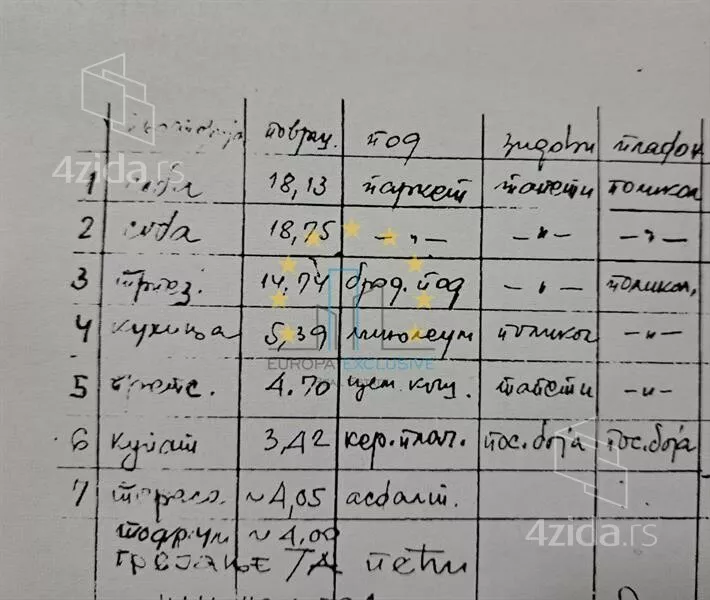 површ. под зидови плафон
1 соба 18,13 паркет тапети поликол
2 соба 18,75 —〃— —〃— —〃—
3 трпез. 14.74 брод. под —〃— поликол.
4 кухиња 5,39 линолеум поликол —〃—
5 4.70 цем. кош. тапети —〃—
6 купат 3,42 кер. плоч. пос. боја пос. боја
7 тераса ~4,05 асфалт.
подрум ~4,00
ГРЕЈАЊЕ ТА пећи
4zida.rs
EUROPA EXCLUSIVE
4zida.rs